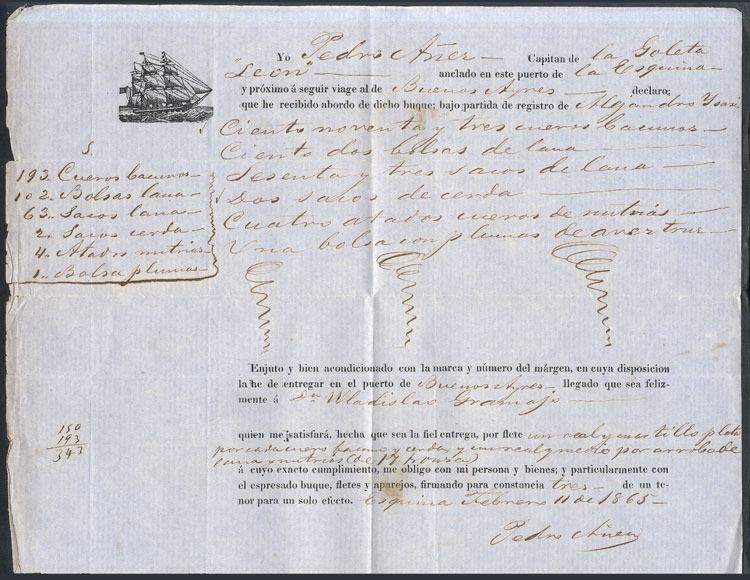 Yo Pedro Añer Capitan de la Goleta
"Leon" anclado en este puerto de la Esquina
y próximo á seguir viage al de Buenos Ayres declaro;
que he recibido abordo de dicho buque; bajo partida de registro de Alejandro
Ciento noventa y tres cueros bacunos
Ciento dos bolsas de lana
Sesenta y tres sacos de lana
Dos sacos de cerda
Cuatro atados cueros de nutrias
Una bolsa con plumas de avez truz
S.
193. Cueros bacunos
102. Bolsas lana
63. Sacos lana
2. Sacos cerda
4. Atados nutrias
1. Bolsa plumas
Enjuto y bien acondicionado con la marca y número del márgen, en cuya disposicion
la he de entregar en el puerto de Buenos Ayres llegado que sea feliz-
mente á Dn Wladislao Gramajo
150
193
343
quien me satisfará, hecha que sea la fiel entrega, por flete un real y cuartillo plata
por cada cuero bacuno y cerda, y un real y medio por arroba de
lana y nutrias (de 17 onza)
á cuyo exacto cumplimiento, me obligo con mi persona y bienes; y particularmente con
el espresado buque, fletes y aparejos, firmando para constancia tres de un te-
nor para un solo efecto. Esquina Febrero 11 de 1865
Pedro Añer